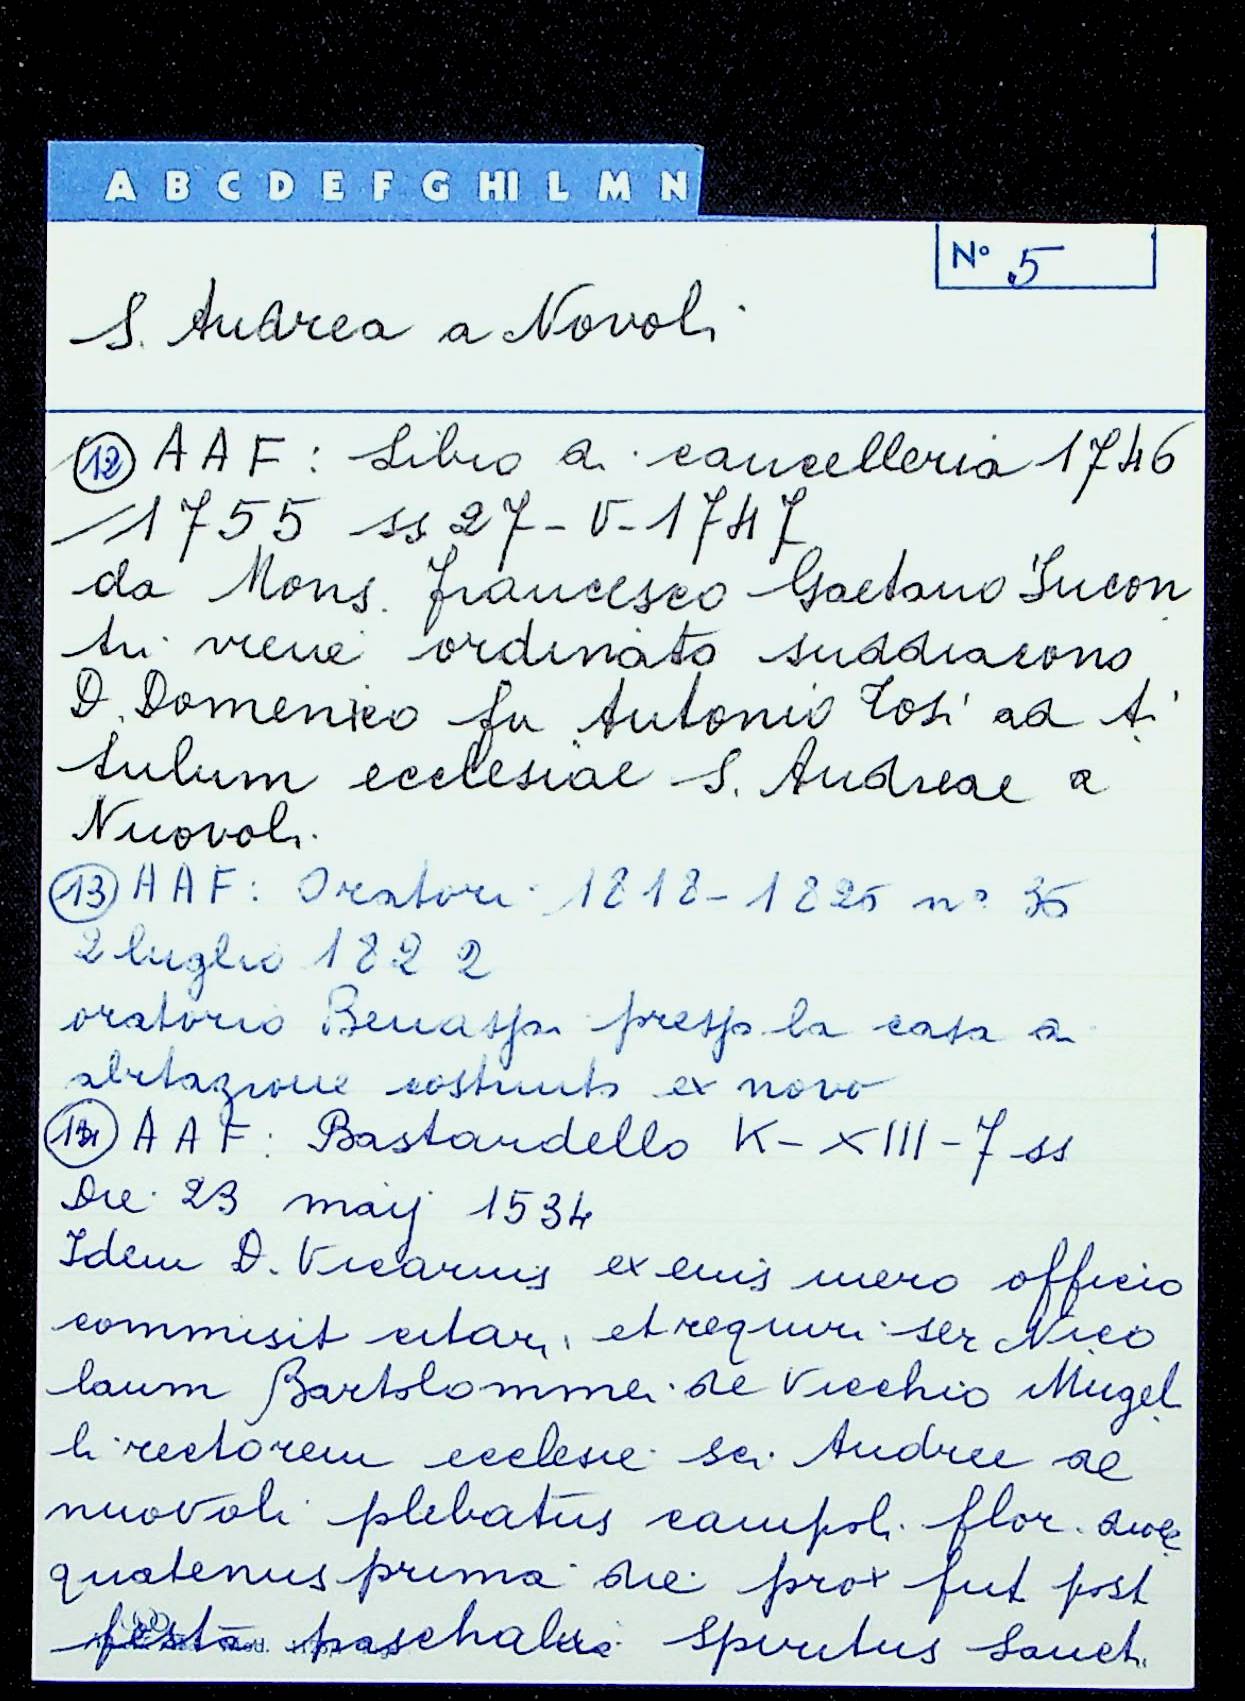 A B C D E F G HI L M N
N° 5
S. Andrea a Novoli
12 AAF: Libro di cancelleria 1746
/1755 ss 27-V-1747
da Mons. Francesco Gaetano Incon
tri viene ordinato suddiacono
D. Domenico fu Antonio Tosi ad ti
tulum ecclesiae S. Andreae a
Nuovoli.
13 AAF: Oratori 1818-1825 n° 35
2 luglio 1822
oratorio Benassai presso la casa di
abitazione costruito ex novo
AAF: Bastardello K-XIII-7 ss
Die 23 maij 1534
Idem D. Vicarius ex eius mero officio
commisit citari, et requiri ser Nico
laum Bartolommei de Vicchio Mugel
li rectorem ecclesie sci Andree de
nuovoli plebatus campoli flor. dioc
quatenus prima die prox fut post
festa paschalia Spiritus Sancti